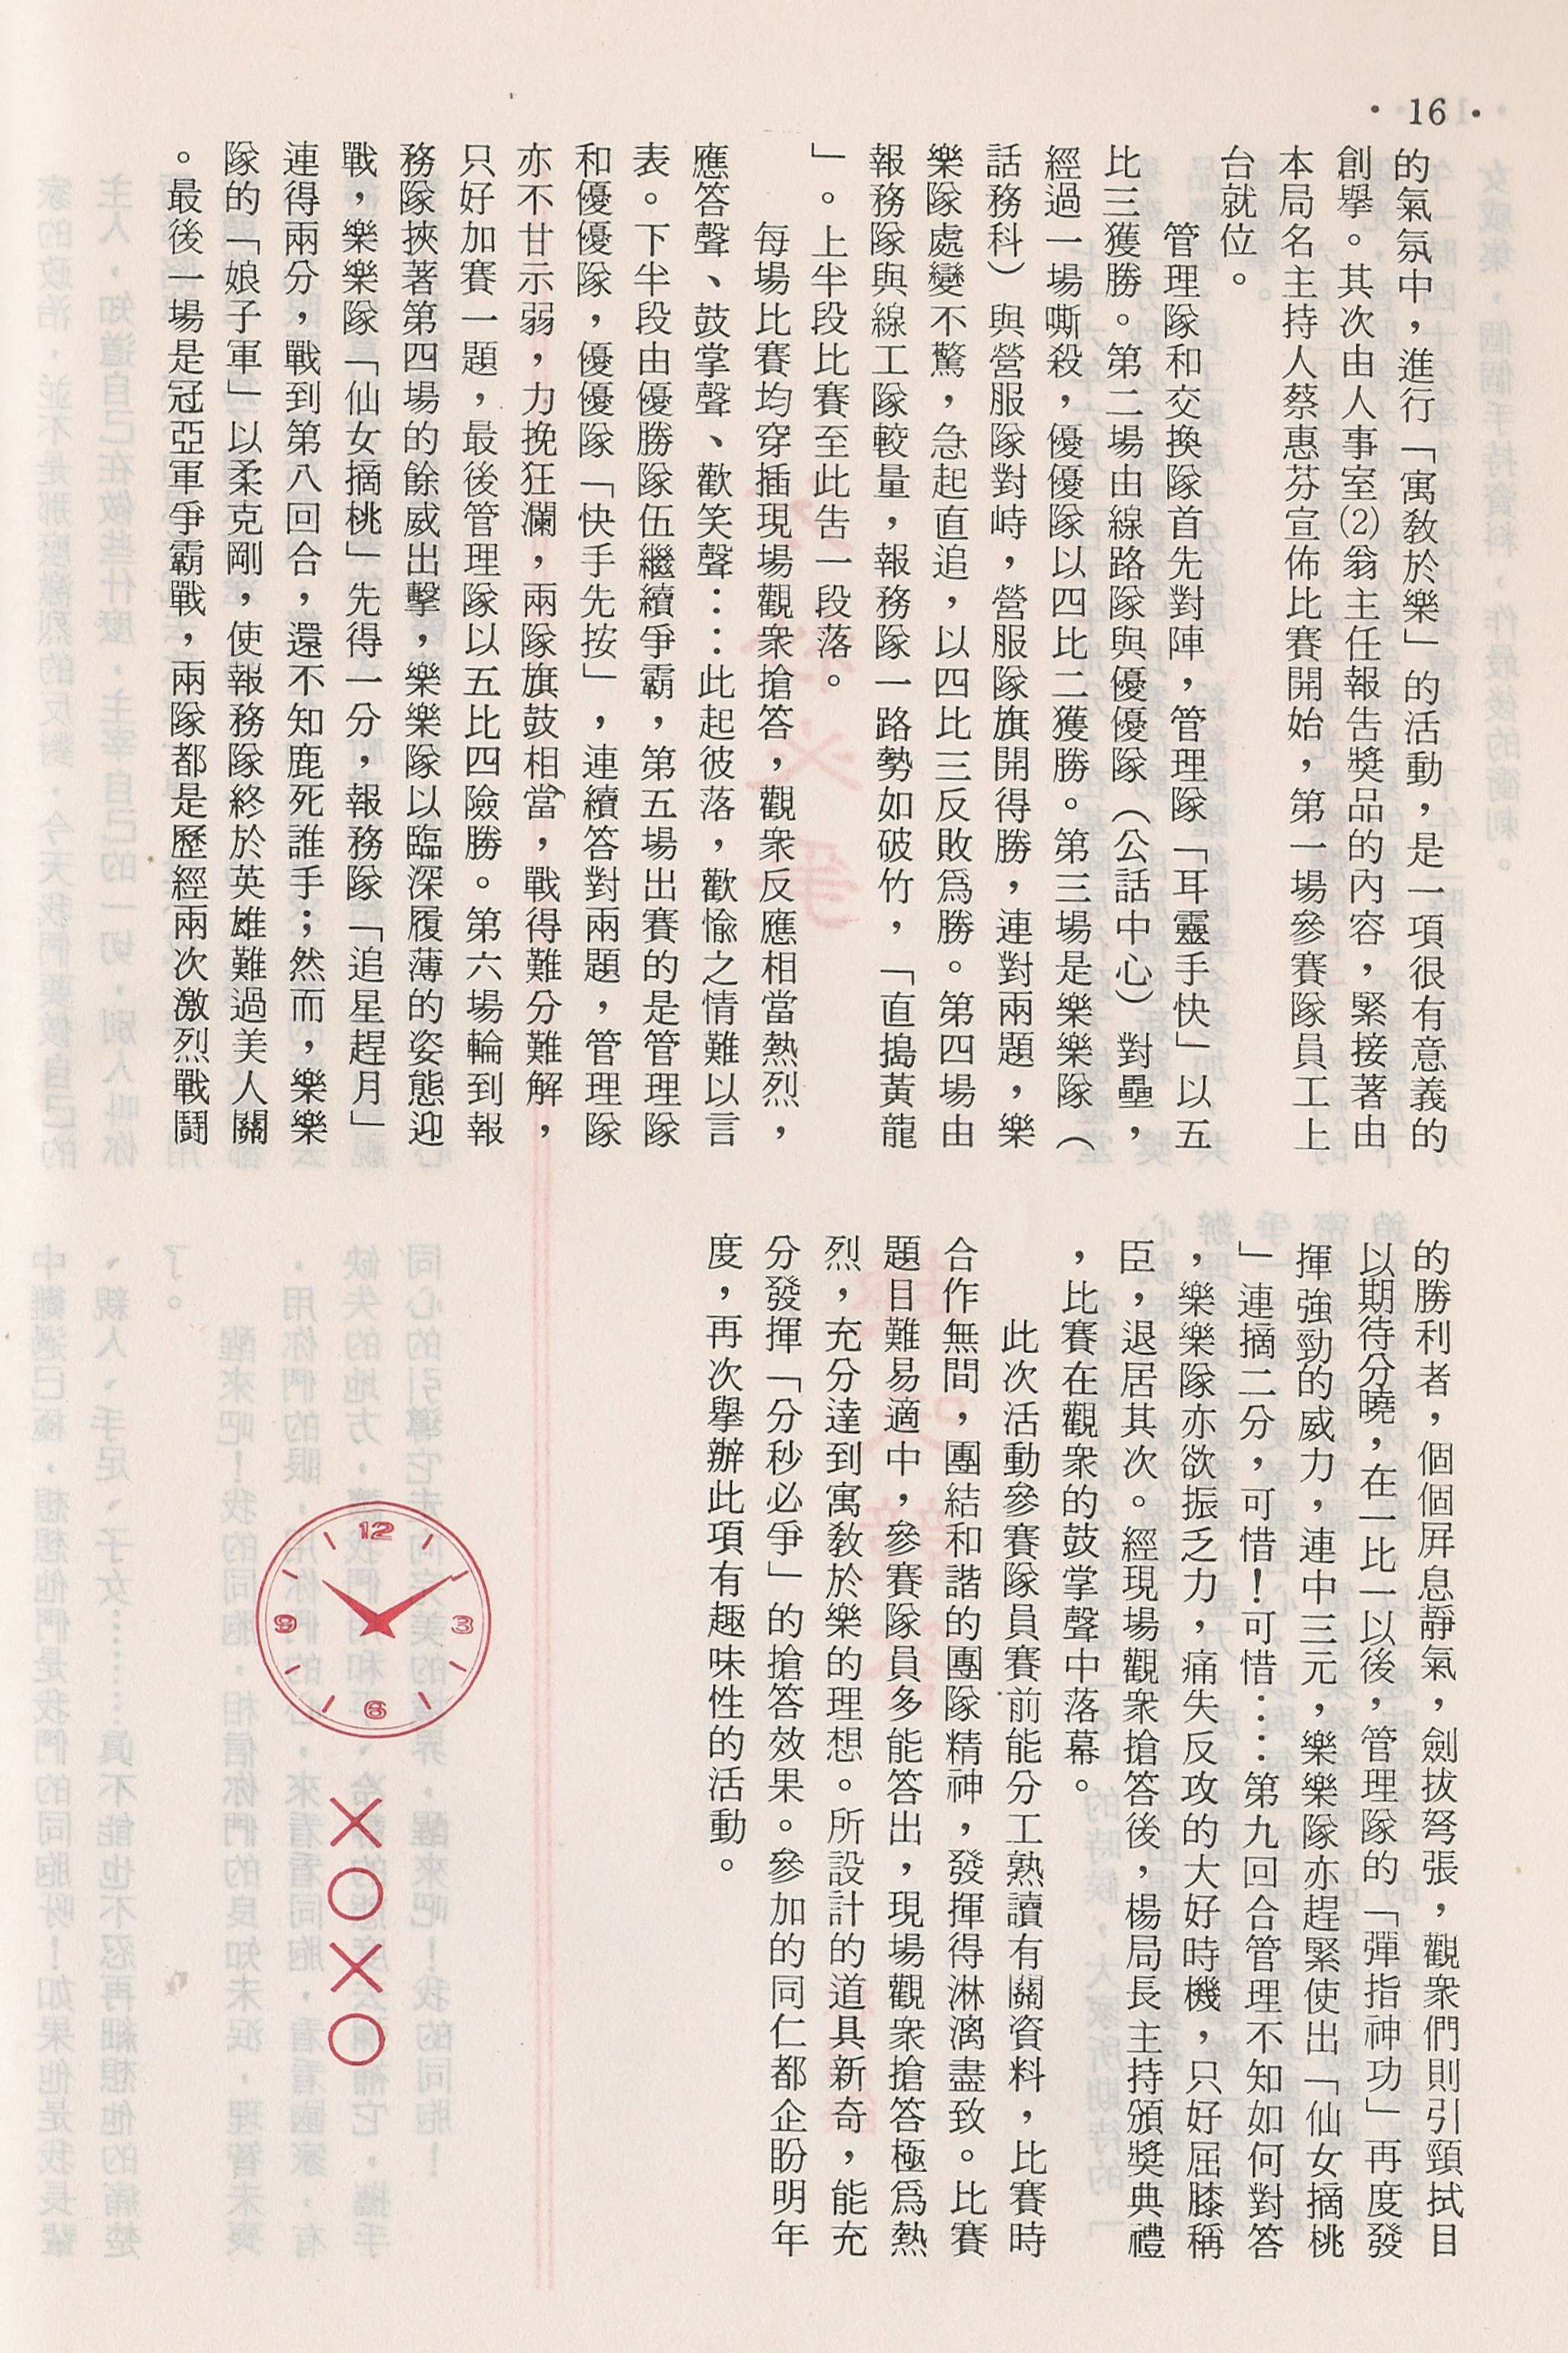 •16•
的氣氛中，進行「寓教於樂」的活動，是一項很有意義的
創舉。其次由人事室⑵翁主任報告獎品的內容，緊接著由
本局名主持人蔡惠芬宣佈比賽開始，第一場參賽隊員工上
台就位。
管理隊和交換隊首先對陣，管理隊「耳靈手快」以五
比三獲勝。第二場由線路隊與優優隊（公話中心）對壘，
經過一場嘶殺，優優隊以四比二獲勝。第三場是樂樂隊（
話務科）與營服隊對峙，營服隊旗開得勝，連對兩題，樂
樂隊處變不驚，急起直追，以四比三反敗爲勝。第四場由
報務隊與線工隊較量，報務隊一路勢如破竹，「直搗黃龍
」。上半段比賽至此告一段落。
每場比賽均穿插現場觀衆搶答，觀衆反應相當熱烈，
應答聲、鼓掌聲、歡笑聲……此起彼落，歡愉之情難以言
表。下半段由優勝隊伍繼續爭霸，第五場出賽的是管理隊
和優優隊，優優隊「快手先按」，連續答對兩題，管理隊
亦不甘示弱，力挽狂瀾，兩隊旗鼓相當，戰得難分難解，
只好加賽一題，最後管理隊以五比四險勝。第六場輪到報
務隊挾著第四場的餘威出擊，樂樂隊以臨深履薄的姿態迎
戰，樂樂隊「仙女摘桃」先得一分，報務隊「追星趕月」
連得兩分，戰到第八回合，還不知鹿死誰手；然而，樂樂
隊的「娘子軍」以柔克剛，使報務隊終於英雄難過美人關
。最後一場是冠亞軍爭霸戰，兩隊都是歷經兩次激烈戰鬪
的勝利者，個個屏息靜氣，劍拔弩張，觀衆們則引頸拭目
以期待分曉，在一比一以後，管理隊的「彈指神功」再度發
揮強勁的威力，連中三元，樂樂隊亦趕緊使出「仙女摘桃
」連摘二分，可惜！可惜……第九回合管理不知如何對答
，樂樂隊亦欲振乏力，痛失反攻的大好時機，只好屈膝稱
臣，退居其次。經現場觀衆搶答後，楊局長主持頒獎典禮
，比賽在觀衆的鼓掌聲中落幕。
此次活動參賽隊員賽前能分工熟讀有關資料，比賽時
合作無間，團結和諧的團隊精神，發揮得淋漓盡致。比賽
題目難易適中，參賽隊員多能答出，現場觀衆搶答極爲熱
烈，充分達到寓教於樂的理想。所設計的道具新奇，能充
分發揮「分秒必爭」的搶答效果。參加的同仁都企盼明年
度，再次舉辦此項有趣味性的活動。
12
3
6
9
×○×○